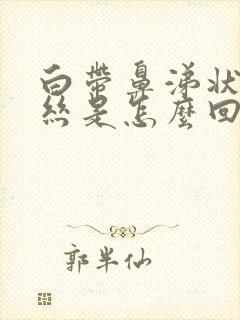 白帶鼻涕狀
絲是怎麼回
郭半仙